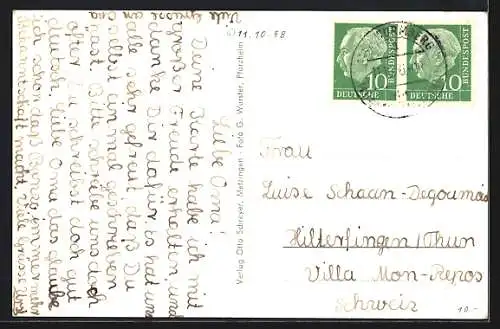 11.10.58
Liebe Oma!
Deine Karte habe ich mit
großer Freude erhalten und
danke Dir dafür. Es hat uns
alle sehr gefreut daß Du
selbst ein mal geschrieben
hast. Bitte schreibe uns doch
öfter. Du schreibst doch gut
deutsch. Liebe Oma das glaube
ich schon daß immer mehr
macht. Viele Grüsse
Viele Grüsse an
Verlag Otto Schreyer, Metzingen - Foto G. Wurster, Pfürzheim
10 BUNDESPOST
DEUTSCHE
10 BUNDESPOST
DEUTSCHE
Frau
Luise Schaan-Degoumois
Hilterfingen/Thun
Villa Mon-Repos
Schweiz
10.-